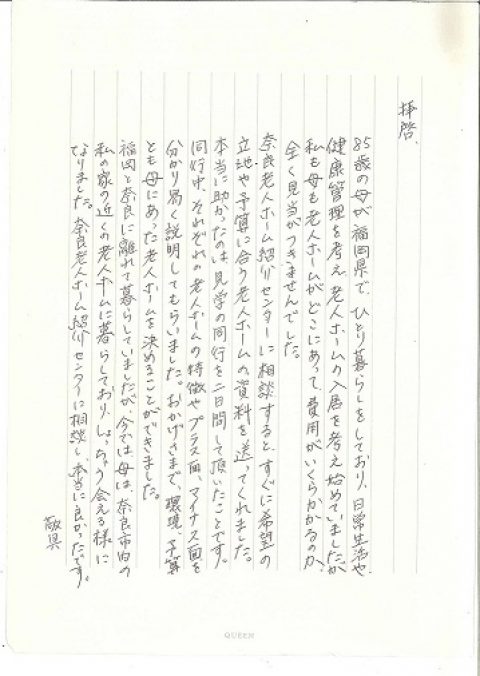 拝啓、
85歳の母が福岡県で、ひとり暮らしをしており、日常生活や
健康管理を考え、老人ホームの入居を考え始めていましたが
私も母も老人ホームがどこにあって、費用がいくらかかるのか、
全く見当がつきませんでした。
奈良老人ホーム紹介センターに相談すると、すぐに希望の
立地や予算に合う老人ホームの資料を送ってくれました。
本当に助かったのは、見学の同行を二日間して頂いたことです。
同行中、それぞれの老人ホームの特徴やプラス面、マイナス面を
分かり易く説明してもらいました。おかげさまで、環境、予算
とも母にあった老人ホームを決めることができました。
福岡と奈良に離れて暮らしていましたが、今では母は、奈良市内の
私の家の近くの老人ホームに暮らしており、しょっちゅう会える様に
なりました。奈良老人ホーム紹介センターに相談し、本当に良かったです。
敬具
QUEEN